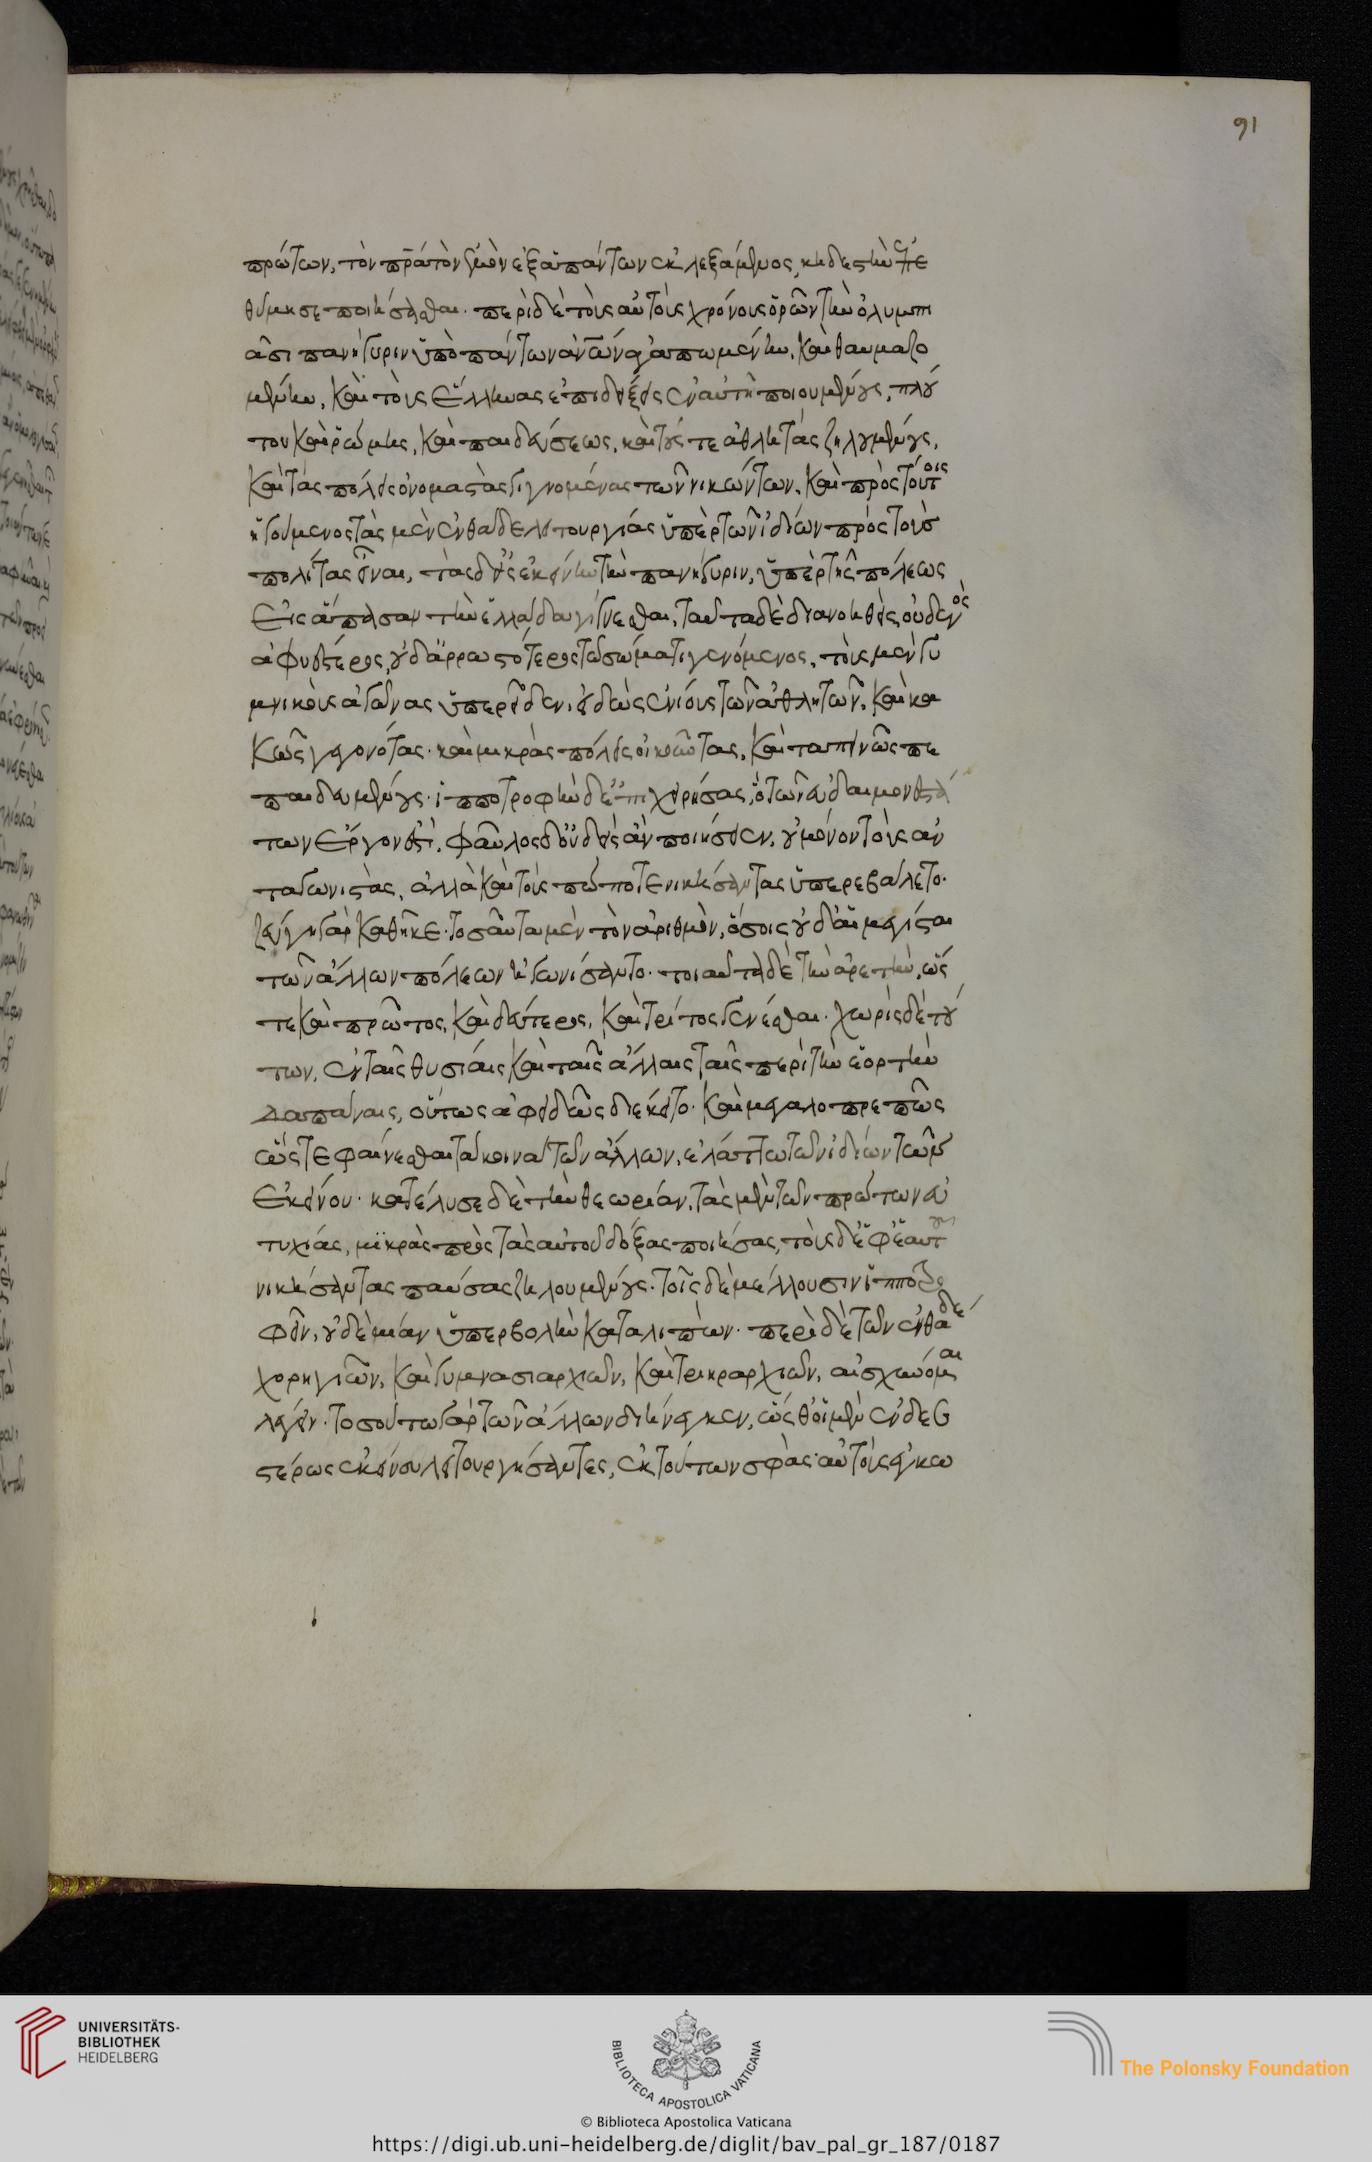 πρώτων, τὸν πρᾶτον ἡμῶν ἐξ ἁπάντων ἐκλεξάμενος, κηδεστὴν ἐπε
θύμησε ποιήσασθαι. περὶ δὲ τοὺς αὐτοὺς χρόνους ὁρῶν τὴν ὀλυμπι
ᾶσι πανήγυριν ὑπὸ πάντων ἀνων ἀγαπωμένην, καὶ θαυμαζο
μένην, καὶ τοὺς ἕλληνας ἐπιδείξεις ἐν αὐτῇ ποιουμένους, πλού
του καὶ ῥώμης, καὶ παιδεύσεως, καὶ τούς τε ἀθλητὰς ζηλουμένους,
καὶ τὰς πόλεις ὀνομαστὰς γιγνομένας τῶν νικώντων. καὶ πρὸς τούτοις
ἡγούμενος τὰς μὲν ἐνθάδε λειτουργίας ὑπὲρ τῶν ἰδίων πρὸς τοὺσ
πολίτας εἶναι, τὰς δ' εἰς ἐκείνην τὴν πανήγυριν, ὑπὲρ τῆς πόλεως
εἰς ἅπασαν τὴν ἑλλάδα γίγνεσθαι, ταῦτα δὲ διανοηθεὶς, οὐδενὸς
ἀφυέστερος, οὐδ' ἀρρωστότερος τῶ σώματι γενόμενος, τοὺς μὲν γυ
μνικοὺς ἀγῶνας ὑπερεῖδεν, εἰδὼς ἐνίους τῶν ἀθλητῶν, καὶ κα
κῶς γεγονότας. καὶ μικρὰς πόλεις οἰκοῦντας, καὶ ταπεινῶς πε
παιδευμένους. ἱπποτροφεῖν δ' ἐπιχειρήσας, ὃ τῶν εὐδαιμονεστά
των ἔργον ἐστὶ, φαῦλος δ' οὐδεὶς ἂν ποιήσειεν, οὐ μόνον τοὺς ἀν
ταγωνιστὰς, ἀλλὰ καὶ τοὺς πώποτε νικήσαντας ὑπερεβάλετο.
ζεύγη γὰρ καθῆκε. τοσαῦτα μὲν τὸν ἀριθμὸν, ὅσοις οὐδ' αἱ μεγίσται
τῶν ἄλλων πόλεων ἠγωνίσαντο. τοιαῦτα δὲ τὴν ἀρετὴν, ὥσ
τε καὶ πρῶτος, καὶ δεύτερος, καὶ τρίτος γενέσθαι. χωρὶς δὲ τού
των, ἐν ταῖς θυσίαις καὶ ταῖς ἄλλαις ταῖς περὶ τὴν ἑορτὴν
δαπάναις, οὕτως ἀφειδῶς διέκειτο. καὶ μεγαλοπρεπῶς
ὥστε φαίνεσθαι τὰ κοινὰ τῶν ἄλλων, ἐλάττω τῶν ἰδίων τῶν
ἐκείνου. κατέλυσε δὲ τὴν θεωρίαν, τὰς μὲν τῶν πρώτων εὐ
τυχίας, μικρὰς πρὸς τὰς αὐτοῦ δόξας ποιήσας, τοὺς δ' ἐφ' ἑαυτοῦ
νικήσαντας παύσας ζηλουμένους. τοῖς δὲ μέλλουσιν ἱπποτρο
φεῖν, οὐδεμίαν ὑπερβολὴν καταλιπών. περὶ δὲ τῶν ἐνθάδε
χορηγιῶν, καὶ γυμνασιαρχιῶν, καὶ τριηραρχιῶν, αἰσχύνομαι
λέγειν. τοσοῦτω γὰρ τῶν ἄλλων διήνεγκεν, ὥσθ' οἱ μὲν ἐνδεε
στέρως ἐκείνου λειτουργήσαντες, ἐκ τούτων σφᾶς αὐτοὺς ἐγκω
91
UNIVERSITÄTS-
BIBLIOTHEK
HEIDELBERG
BIBLIOTECA APOSTOLICA VATICANA
© Biblioteca Apostolica Vaticana
The Polonsky Foundation
https://digi.ub.uni-heidelberg.de/diglit/bav_pal_gr_187/0187